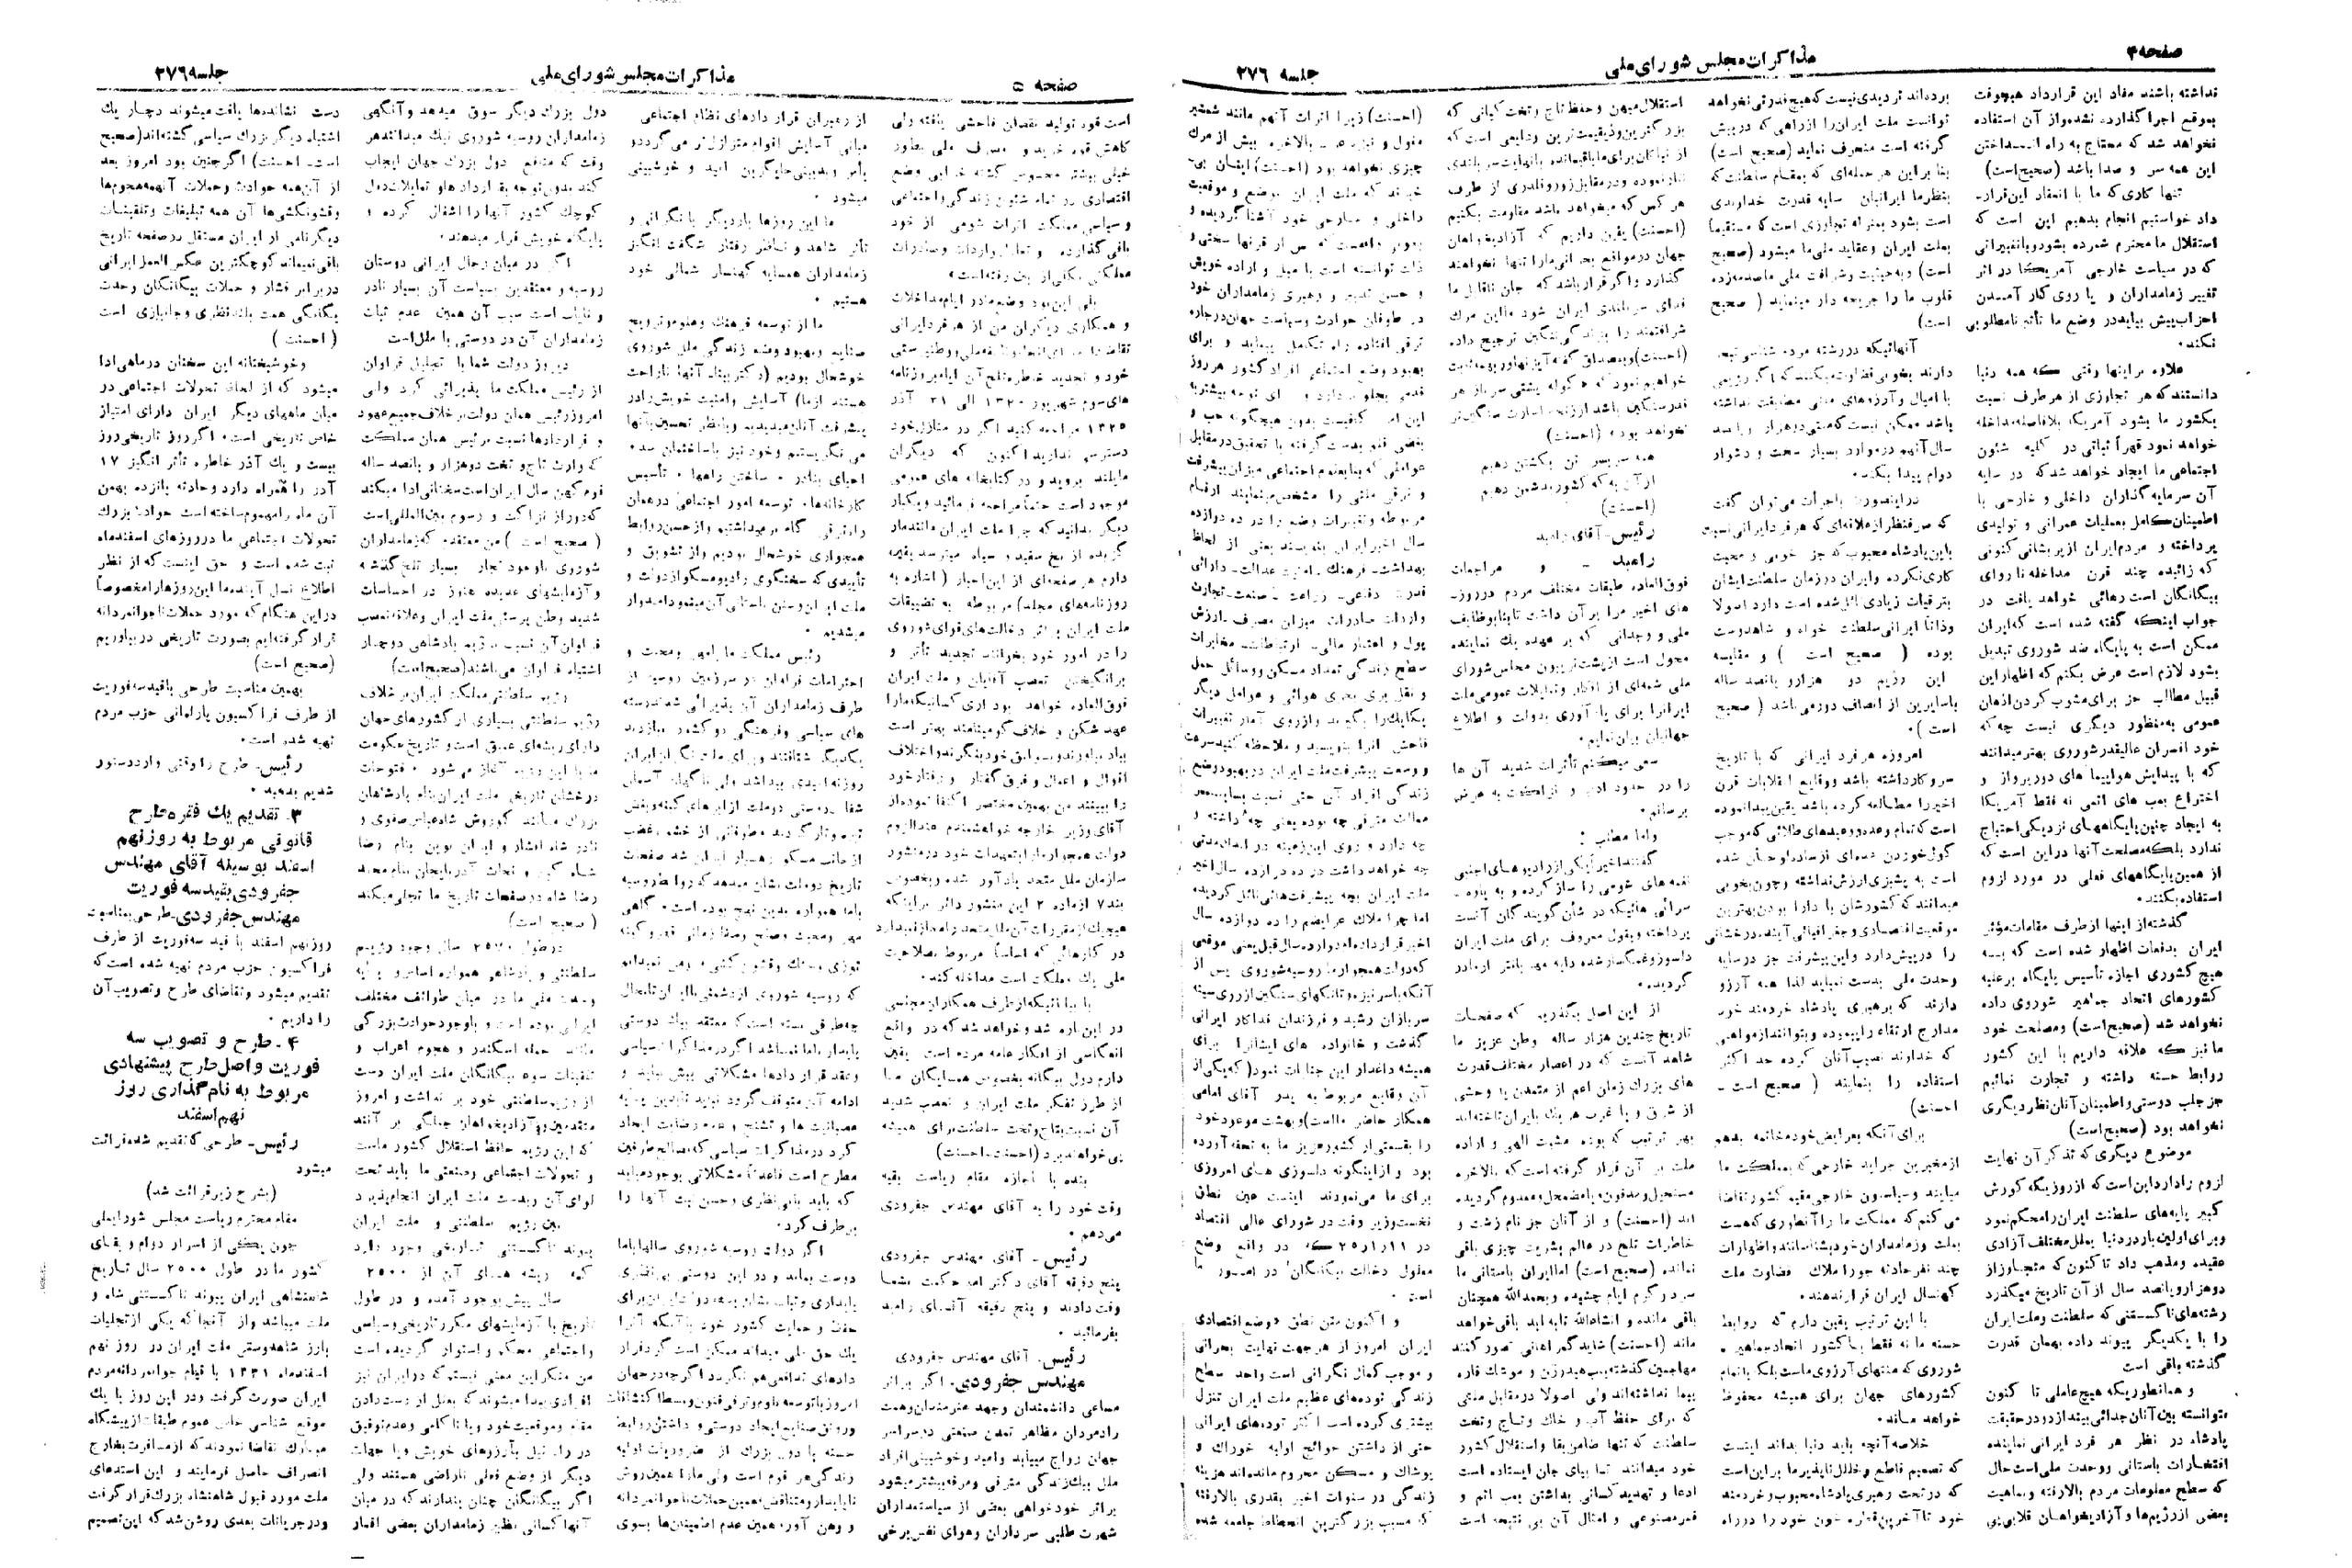 صفحه ۴
مذاکرات مجلس شورای ملی
جلسه ۲۷۶
نداشته باشند مفاد این قرارداد هیچوقت
بموقع اجرا گذارده نشده و از آن استفاده
نخواهد شد که محتاج به راه انداختن
این همه سر و صدا باشد (صحیح است)
تنها کاری که ما با انعقاد این قرار-
داد خواستیم انجام بدهیم این است که
استقلال ما محترم شمرده بشود و با تغییراتی
که در سیاست خارجی آمریکا در اثر
تغییر زمامداران و یا روی کار آمدن
احزاب پیش بیاید در وضع ما تأثیر نامطلوبی
نکند.
علاوه بر اینها وقتی که همه دنیا
دانستند که هر تجاوزی از هر طرف نسبت
بکشور ما بشود آمریکا بلافاصله مداخله
خواهد نمود قهراً ثباتی در کلیه شئون
اجتماعی ما ایجاد خواهد شد که در سایه
آن سرمایه گذاران داخلی و خارجی با
اطمینان کامل بعملیات عمرانی و تولیدی
پرداخته و مردم ایران از پریشانی کنونی
که زائیده چند قرن مداخله ناروای
بیگانگان است رهائی خواهد یافت در
جواب اینکه گفته شده است که ایران
ممکن است به پایگاه ضد شوروی تبدیل
بشود لازم است عرض بکنم که اظهار این
قبیل مطالب جز برای مشوب کردن اذهان
عمومی به منظور دیگری نیست چه که
خود افسران عالیقدر شوروی بهتر میدانند
که با پیدایش هواپیما های دورپرواز و
اختراع بمب های اتمی نه فقط آمریکا
به ایجاد چنین پایگاههای نزدیکی احتیاج
ندارد بلکه مصلحت آنها در این است که
از همین پایگاههای فعلی در مورد لزوم
استفاده بکنند.
گذشته از اینها از طرف مقامات مؤثر
ایران بدفعات اظهار شده است که بسه
هیچ کشوری اجازه تأسیس پایگاه بر علیه
کشورهای اتحاد جماهیر شوروی داده
نخواهد شد (صحیح است) و مصلحت خود
ما نیز که علاقه داریم با این کشور
روابط حسنه داشته و تجارت نمائیم
جز جلب دوستی و اطمینان آنان نظر دیگری
نخواهد بود (صحیح است)
موضوع دیگری که تذکر آن نهایت
لزوم را دارد این است که از روزیکه کورش
کبیر پایه‌های سلطنت ایران را محکم نمود
و برای اولین بار در دنیا بملل مختلف آزادی
عقیده و مذهب داد تا کنون که متجاوز از
دو هزار و پانصد سال از آن تاریخ میگذرد
رشته‌های ناگسستنی که سلطنت و ملت ایران
را با یکدیگر پیوند داده بهمان قدرت
گذشته باقی است
و همانطوریکه هیچ عاملی تا کنون
نتوانسته بین آنان جدائی بیندازد در حقیقت
پادشاه در نظر هر فرد ایرانی نماینده
افتخارات باستانی و وحدت ملی است حال
که سطح معلومات مردم بالا رفته و بماهیت
بعضی از رژیم‌ها و آزادیخواهان قلابی پی
برده‌اند تردیدی نیست که هیچ قدرتی نخواهد
توانست ملت ایران را از راهی که در پیش
گرفته است منحرف نماید (صحیح است)
بنا بر این هر حمله‌ای که بمقام سلطنت که
بنظر ما ایرانیان سایه قدرت خداوندی
است بشود بمنزله تجاوزی است که مستقیماً
بملت ایران و عقاید ملی ما میشود (صحیح
است) و به حیثیت و شرافت ملی ما صدمه زده
قلوب ما را جریحه دار مینماید (صحیح
است)
باشد ممکن نیست که حتی دو هزار و پانصد
سال آنهم در موارد بسیار سخت و دشوار
دوام پیدا بکند.
در اینصورت باجرأت می‌توان گفت
که صرفنظر از علاقه‌ای که هر فرد ایرانی نسبت
باین پادشاه محبوب که جز خوبی و محبت
کاری نکرده و ایران در زمان سلطنت ایشان
بترقیات زیادی نائل شده است دارد اصولا
وذاتاً ایرانی سلطنت خواه و شاهدوست
بوده (صحیح است) و مقایسه
این رژیم دو هزار و پانصد ساله
با سایرین از انصاف دور می‌باشد (صحیح
است).
امروزه هر فرد ایرانی که با تاریخ
سر و کار داشته باشد و وقایع انقلابات قرن
اخیر را مطالعه کرده باشد یقین پیدا نموده
است که تمام وعده و وعیدهای طلائی که موجب
است به پشیزی ارزش نداشته و چون بخوبی
میدانند که کشورشان با دارا بودن بهترین
موقعیت اقتصادی و جغرافیائی آینده درخشانی
را در پیش دارد و این پیشرفت جز در سایه
وحدت ملی بدست نمیاید لذا همه آرزو
دارند که برهبری پادشاه خردمند خود
مدارج ارتقاء را پیموده و بتوانند از مواهبی
که خداوند نصیب آنان کرده حد اکثر
استفاده را بنمایند (صحیح است -
احسنت)
برای آنکه بعرایض خود خاتمه بدهم
از مخبرین جراید خارجی که بمملکت ما
میایند و سیاسیون خارجی مقیم کشور تقاضا
می کنم که مملکت ما را آنطوری که هست
بملت و زمامداران خود بشناسانند و اظهارات
چند نفر حادثه جو را ملاک قضاوت ملت
کهنسال ایران قرار ندهند.
با این ترتیب یقین دارم که روابط
حسنه ما نه فقط با کشور اتحاد جماهیر
شوروی که منتهای آرزوی ماست بلکه با تمام
کشورهای جهان برای همیشه محفوظ
خواهد ماند.
خلاصه آنچه باید دنیا بداند اینست
که تصمیم قاطع و خلل ناپذیر ما بر این است
که در تحت رهبری پادشاه محبوب و خردمند
خود تا آخرین قطره خون خود را در راه
استقلال میهن و حفظ تاج و تخت کیانی که
بزرگترین و ذیقیمت‌ترین ودایعی است که
از نیاکان برای ما باقیمانده با نهایت سربلندی
نثار نموده و در مقابل زور و قلدری از طرف
هر کس که میخواهد باشد مقاومت بکنیم
(احسنت) یقین داریم که آزادیخواهان
جهان در مواقع بحرانی ما را تنها نخواهند
گذارد و اگر قرار باشد که جان ناقابل ما
فدای سربلندی ایران شود ما این مرگ
شرافتمند را بزندگی ننگین ترجیح داده
نخواهد بود. (احسنت)
همه سر بسر تن بکشتن دهیم
از آن به که کشور بدشمن دهیم
(احسنت)
رئیس- آقای رامبد
رامبد - و مراجعات
فوق‌العاده طبقات مختلف مردم در روز-
های اخیر مرا بر آن داشت تا بنا بوظایف
ملی و وجدانی که بر عهده یک نماینده
محول است از پشت تریبون مجلس شورای
ملی شمه‌ای از افکار و تمایلات عمومی ملت
ایران را برای یادآوری بدولت و اطلاع
جهانیان بیان نمایم.
سعی میکنم تأثرات شدید آن ها
را در حدود ادب و نزاکت به عرض
برسانم.
و اما مطلب:
گفتند اخیراً یکی از رادیوهای اجنبی
نغمه های شومی را ساز کرده و به یاوه -
سرائی هائیکه در شأن گویندگان آنست
پرداخته و بقول معروف برای ملت ایران
دلسوز و غمگسار شده دایه مهربانتر از مادر
گردیده.
از این اصل بگذریم که صفحات
تاریخ چندین هزار ساله وطن عزیز ما
شاهد آنست که در اعصار مختلف قدرت
های بزرگ زمان اعم از متمدن یا وحشی
از شرق و یا غرب هر یک بایران تاخته‌اند
بهر ترتیب که بوده مشیت الهی و اراده
ملت بر آن قرار گرفته است که بالاخره
مستحیل و مدفون یا مضمحل و معدوم گردیده
اند (احسنت) و از آنان جز نام زشت و
خاطرات تلخ در عالم بشریت چیزی باقی
نمانده (صحیح است) اما ایران باستانی ما
سرد و گرم ایام چشیده و بحمدالله همچنان
باقی مانده و انشاءالله تا به ابد باقی خواهد
ماند (احسنت) شاید گمراهانی تصور کنند
مهاجمین گذشته بمب هیدرژن و موشک قاره
پیما نداشته‌اند ولی اصولا در مقابل ملتی
که برای حفظ آب و خاک و تاج و تخت
سلطنت که تنها ضامن بقا و استقلال کشور
خود میدانند تا پای جان ایستاده است
ادعا و تهدید کسانی بداشتن بمب اتم و
قمر مصنوعی و امثال آن بی نتیجه است
(احسنت) زیرا اثرات آنهم مانند شمشیر
چیزی نخواهد بود (احسنت) اینان بی-
خبرند که ملت ایران بوضع و موقعیت
داخلی و خارجی خود آشنا گردیده و
بخوبی دانسته است که پس از قرنها سختی و
ذلت توانسته است با میل و اراده خویش
و حسن تدبیر و رهبری زمامداران خود
در طوفان حوادث و سیاست جهان در جاده
ترقی افتاده راه تکامل بپیماید و برای
بهبود وضع اجتماعی افراد کشور هر روز
بغض قلم بدست گرفته با تحقیق در مقابل
و ترقی ملتی را مشخص مینمایند ارقام
مربوطه و تغییرات وضع را در ده دوازده
سال اخیر ایران بنویسند یعنی از لحاظ
بهداشت - فرهنگ - امنیت عدالت - دارائی
قدرت دفاعی - زراعت - صنعت - تجارت
واردات صادرات میزان مصرف - ارزش
پول و اعتبار مالی - ارتباطات - مخابرات
سطح زندگی تعداد مسکن و وسائل حمل
و نقل بری بحری هوائی و عوامل دیگر
فاحش آنرا بنویسند و ملاحظه کنند سرعت
و وسعت پیشرفت ملت ایران در بهبود وضع
زندگی افراد آن حتی نسبت بسایر
ممالک مترقی چه بوده یعنی چه داشته و
چه دارد و روی این زمینه در اندک مدتی
چه خواهد داشت در ده دوازده سال اخیر
ملت ایران بچه پیشرفت‌هائی نائل گردیده
اما چرا ملاک عرایضم را ده دوازده سال
اخیر قرار داده‌ام دوازده سال قبل یعنی موقعی
که دولت همجوار ما روسیه شوروی پس از
آنکه با سر نیزه و تانکهای سنگین از روی سینه
سربازان رشید و فرزندان فداکار ایرانی
گذشت و خانواده های ایشانرا برای
همیشه داغدار این جنایات نمود (که یکی از
آن وقایع مربوط به پسر آقای امامی
همکار حاضر ماست) و بهشت موعود خود
را بقسمتی از کشور عزیز ما به تحفه آورده
بود و از اینگونه دلسوزی های امروزی
برای ما می‌نمودند اینست عین نطق
نخست وزیر وقت در شورای عالی اقتصاد
معلول دخالت بیگانگان در امور ما
است.
و اکنون متن نطق «وضع اقتصادی
ایران امروز از هر جهت نهایت بحرانی
و موجب کمال نگرانی است و احد سطح
زندگی توده‌های عظیم ملت ایران تنزل
بیشتری کرده است اکثر توده‌های ایرانی
حتی از داشتن حوائج اولیه خوراک و
پوشاک و مسکن محروم مانده‌اند هزینه
زندگی در سنوات اخیر بقدری بالا رفته
که مسبب بزرگترین انحطاط جامعه شده
صفحه ۵
مذاکرات مجلس شورای ملی
جلسه ۲۷۶
است قوه تولید نقصان فاحشی یافته ولی
کاهش قوه خرید و مصرف ملی بطور
خیلی بیشتر محسوس گشته خرابی وضع
اقتصادی در تمام شئون زندگی و اجتماعی
و سیاسی مملکت اثرات شومی از خود
باقی گذارده و تعادل واردات و صادرات
مملکتی بکلی از بین رفته است»
بلی این بود وضع ما در ایام مداخلات
و همکاری دیگران من از هر فرد ایرانی
خود و تجدید خاطره تلخ آن ایام روزنامه
های سوم شهریور ۱۳۲۰ الی ۲۱ آذر
۱۳۲۵ مراجعه کنید اگر در منازل خود
دسترس ندارید اکنون که دیگران
مایلند بروید و در کتابخانه های عمومی
موجود است حتماً مراجعه فرمائید و یکبار
دیگر بدانید که چرا ملت ایران مانند مار
گزیده از نخ سفید و سیاه میترسد یقین
دارم هر صفحه‌ای از این اخبار (اشاره به
روزنامه‌های مجلد) مربوطه به تضییقات
ملت ایران بر اثر دخالت‌های قوای شوروی
را در امور خود بخوانند تجدید تأثر و
برانگیختن تعصب آقایان و ملت ایران
فوق‌العاده خواهد بود آری کسانیکه ما را
عهد شکن و خلاف گو مینامند بهتر است
بیاد بیاورند و بسوابق خود بنگرند و اختلاف
اقوال و اعمال و فرق گفتار و رفتار خود
را ببینند من بهمین مختصر اکتفا نموده از
آقای وزیر خارجه خواهشمندم عنداللزوم
دولت همجوار ما را بتعهدات خود در منشور
سازمان ملل متحد یادآور شده و بخصوص
بند ۷ از ماده ۲ این منشور دائر بر اینکه
در کارهائی که اساساً مربوط بصلاحیت
ملی یک مملکت است مداخله کند.
با بیاناتیکه از طرف همکاران مجلسی
در این باره شد و خواهد شد که در واقع
انعکاسی از افکار عامه مردم است یقین
دارم دول بیگانه بخصوص همسایگان ما
از طرز تفکر ملت ایران و تعصب شدید
آن نسبت بتاج و تخت سلطنت برای همیشه
پی خواهند برد (احسنت، احسنت)
بنده با اجازه مقام ریاست بقیه
وقت خود را به آقای مهندس جفرودی
می‌دهم.
رئیس - آقای مهندس جفرودی
پنج دقیقه آقای دکتر امید حکمت بشما
وقت دادند و پنج دقیقه آقای رامبد
بفرمائید.
رئیس. آقای مهندس جفرودی
مهندس جفرودی. اگر بر اثر
مساعی دانشمندان و جهد هنرمندان و همت
رادمردان مظاهر تمدن صنعتی در سراسر
جهان رواج مییابد و امید و خوشبینی افراد
ملل بیک زندگی مترقی و مرفه بیشتر میشود
بر اثر خودخواهی بعضی از سیاستمداران
شهرت طلبی سرداران و هوای نفس برخی
از رهبران قرار دادهای نظام اجتماعی
مبانی آسایش اقوام متزلزل تر می گردد و
یأس و بدبینی جایگزین امید و خوشبینی
میشود.
ما این روزها بار دیگر با نگرانی و
تأثر شاهد و ناظر رفتار شگفت انگیز
زمامداران همسایه کهنسار شمالی خود
هستیم.
ما از توسعه فرهنگ و علوم و ترویج
صنایع و بهبود وضع زندگی ملل شوروی
خوشحال بودیم (دکتر بینا- آنها ناراحت
هستند از ما) آسایش و امنیت خویش را در
پیشرفت آنان میدیدیم و با نظر تحسین بآنها
می نگریستیم و خود نیز با ساختمان سد -
احیای بنادر - ساختن راهها - تأسیس
کارخانه‌ها - توسعه امور اجتماعی در همان
راه ترقی گام بر میداشتیم و از حسن روابط
همجواری خوشحال بودیم و از تشویق و
تأییدی که سخنگوی رادیو مسکو از دولت و
ملت ایران و سنن باستانی آن مینمود امیدوار
میشدیم.
رئیس مملکت ما با مهر و محبت و
احترامات فراوان در سرزمین روسیه از
طرف زمامداران آن پذیرائی شد دسته
های سیاسی و فرهنگی دو کشور ببازدید
یکدیگر شتافتند و برای ملت نگران ایران
روزنه امیدی پیدا شد ولی ناگهان آسمان
تیره و تار گردید و طوفانی از خشم و غضب
تاریخ دو ملت نشان میدهد که روابط روسیه
باما همواره بدین نهج بوده است. گاهی
که روسیه شوروی از دشمنی با ایران تا بحال
چه طرفی بسته است که معتقد بیک دوستی
پایدار باما نمیباشد اگر در مذاکرات سیاسی
و عقد قرار دادها مشکلاتی پیش بیاید و
ادامه آن متوقف گردد نباید تا بدین پایه
عصبانیت ها و تشنج و عدم رضایت ایجاد
گردد در مذاکرات سیاسی که مصالح طرفین
مطرح است قاعدتاً مشکلاتی بوجود میاید
که باید با بی نظری و حسن نیت آنها را
برطرف کرد.
اگر دولت روسیه شوروی سالها باما
دوست بماند و در این دوستی بی نظری
حفظ و حمایت کشور خود با آنکه آنرا
یک حق ملی میداند ممکن است گرد قرار
دادهای تدافعی هم نگردد اگر چه در جهان
امروز با توسعه علوم و ترقی فنون و بسط اکتشافات
و رونق صنایع ایجاد دوستی و داشتن روابط
حسنه با دول بزرگ از ضروریات اولیه
زندگی هر قوم است ولی ما را همین روش
ناپایدار و متناقض، همین حملات ناجوانمردانه
و وهن آور، همین عدم اطمینان‌ها بسوی
دول بزرگ دیگر سوق میدهد و آنگهی
زمامداران روسیه شوروی نیک میدانند هر
وقت که منافع دول بزرگ جهان ایجاب
کند بدون توجه بقراردادها و تمایلات دول
کوچک کشور آنها را اشغال کرده و
پایگاه خویش قرار میدهند.
اگر در میان رجال ایرانی دوستان
روسیه و معتقدین بسیاست آن بسیار نادر
و نایاب است سبب آن همین عدم ثبات
زمامداران آن در دوستی با ملل است
دیروز دولت شما با تجلیل فراوان
از رئیس مملکت ما پذیرائی کرد ولی
امروز رئیس همان دولت بر خلاف جمیع عهود
و قراردادها نسبت برئیس همان مملکت
که وارث تاج و تخت دو هزار و پانصد ساله
قوم کهن سال ایران است سخنانی ادا میکند
که دور از نزاکت و رسوم بین المللی است
(صحیح است) من معتقدم که زمامداران
شوروی با وجود تجارب بسیار تلخ گذشته
و آزمایشهای عدیده هنوز در احساسات
شدید وطن پرستی ملت ایران و علاقه و تعصب
فراوان آن نسبت برژیم پادشاهی دوچار
اشتباه فراوان می‌باشند (صحیح است)
رژیم سلطنتی مملکت ایران بر خلاف
رژیم سلطنتی بسیاری از کشورهای جهان
دارای ریشه‌ای عمیق است و تاریخ حکومت
ما با این رژیم آغاز می شود. فتوحات
درخشان تاریخی ملت ایران بنام پادشاهان
بزرگ مانند کوروش شاه عباس صفوی و
نادر شاه افشار و ایران نوین بنام رضا
شاه کبیر و نجات آذربایجان بنام محمد
رضا شاه در صفحات تاریخ ما تجلی میکند
(صحیح است)
در طول ۲۵۷۰ سال وجود رژیم
سلطنتی و پادشاهی همواره اساس و پایه
وحدت ملی ما در میان طوائف مختلف
ایرانی بوده است و با وجود حوادث بزرگی
مانند حمله اسکندر و هجوم اعراب و
تلقینات سوء بیگانگان ملت ایران دست
از رژیم سلطنتی خود بر نداشت و امروز
که این رژیم حافظ استقلال کشور ماست
و تحولات اجتماعی و صنعتی ما باید تحت
لوای آن و بدست ملت ایران انجام پذیرد
بین رژیم سلطنتی و ملت ایران
پیوند ناگسستنی تاریخی وجود دارد
که ریشه های آن از ۲۵۰۰
سال پیش بوجود آمده و در طول
تاریخ با آزمایشهای مکرر تاریخی و سیاسی
و اجتماعی محکم و استوار گردیده است
من منکر این معنی نیستم که در ایران نیز
افرادی پیدا میشوند که بعلل از دست دادن
مقام و موقعیت خود و یا ناکامی و عدم توفیق
در راه نیل بآرزوهای خویش و یا جهات
دیگر از وضع فعلی ناراضی هستند ولی
اگر بیگانگان چنان پندارند که در میان
آنها کسانی نظیر زمامداران بعضی اقمار
دست نشانده‌ها یافت میشوند دچار یک
اشتباه دیگر بزرگ سیاسی گشته‌اند (صحیح
است. احسنت) اگر چنین بود امروز بعد
از آن همه حوادث و حملات آنهمه هجوم‌ها
و قشونکشی‌ها آن همه تبلیغات و تلقینات
دیگر نامی از ایران مستقل در صفحه تاریخ
باقی نمیماند کوچکترین عکس العمل ایرانی
در برابر فشار و حملات بیگانگان وحدت
یگانگی همت بلند نظری و جانبازی است
(احسنت)
و خوشبختانه این سخنان در ماهی ادا
میشود که از لحاظ تحولات اجتماعی در
میان ماههای دیگر ایران دارای امتیاز
خاص تاریخی است. اگر روز تاریخی روز
بیست و یک آذر خاطره تأثر انگیز ۱۷
آذر را همراه دارد و حادثه پانزده بهمن
آن ماه را مهموم ساخته است حوادث بزرگ
تحولات اجتماعی ما در روزهای اسفندماه
ثبت شده است و حق اینست که از نظر
اطلاع نسل آینده ما این روزها را مخصوصاً
در این هنگام که مورد حملات ناجوانمردانه
قرار گرفته‌ایم بصورت تاریخی در بیاوریم
(صحیح است)
بهمین مناسبت طرحی با قید سه فوریت
از طرف فراکسیون پارلمانی حزب مردم
تهیه شده است.
رئیس. طرح را وقتی وارد دستور
شدیم بدهید.
۳. تقدیم یک فقره طرح
قانونی مربوط به روز نهم
اسفند بوسیله آقای مهندس
جفرودی بقید سه فوریت
مهندس جفرودی. طرحی بمناسبت
روز نهم اسفند با قید سه فوریت از طرف
فراکسیون حزب مردم تهیه شده است که
تقدیم میشود و تقاضای طرح و تصویب آن
را داریم.
۴. طرح و تصویب سه
فوریت و اصل طرح پیشنهادی
مربوط به نام گذاری روز
نهم اسفند
رئیس- طرحی که تقدیم شده قرائت
میشود
(بشرح زیر قرائت شد)
مقام محترم ریاست مجلس شورایملی
چون یکی از اسرار دوام و بقای
کشور ما در طول ۲۵۰۰ سال تاریخ
شاهنشاهی ایران پیوند ناگسستنی شاه و
ملت میباشد و از آنجا که یکی از تجلیات
بارز شاهدوستی ملت ایران در روز نهم
اسفندماه ۱۳۳۱ با قیام جوانمردانه مردم
ایران صورت گرفت و در این روز با یک
موقع شناسی خاص عموم طبقات از پیشگاه
مبارک تقاضا نمودند که از مسافرت بخارج
انصراف حاصل فرمایند و این استدعای
ملت مورد قبول شاهنشاه بزرگ قرار گرفت
و در جریانات بعدی روشن شد که این تصمیم